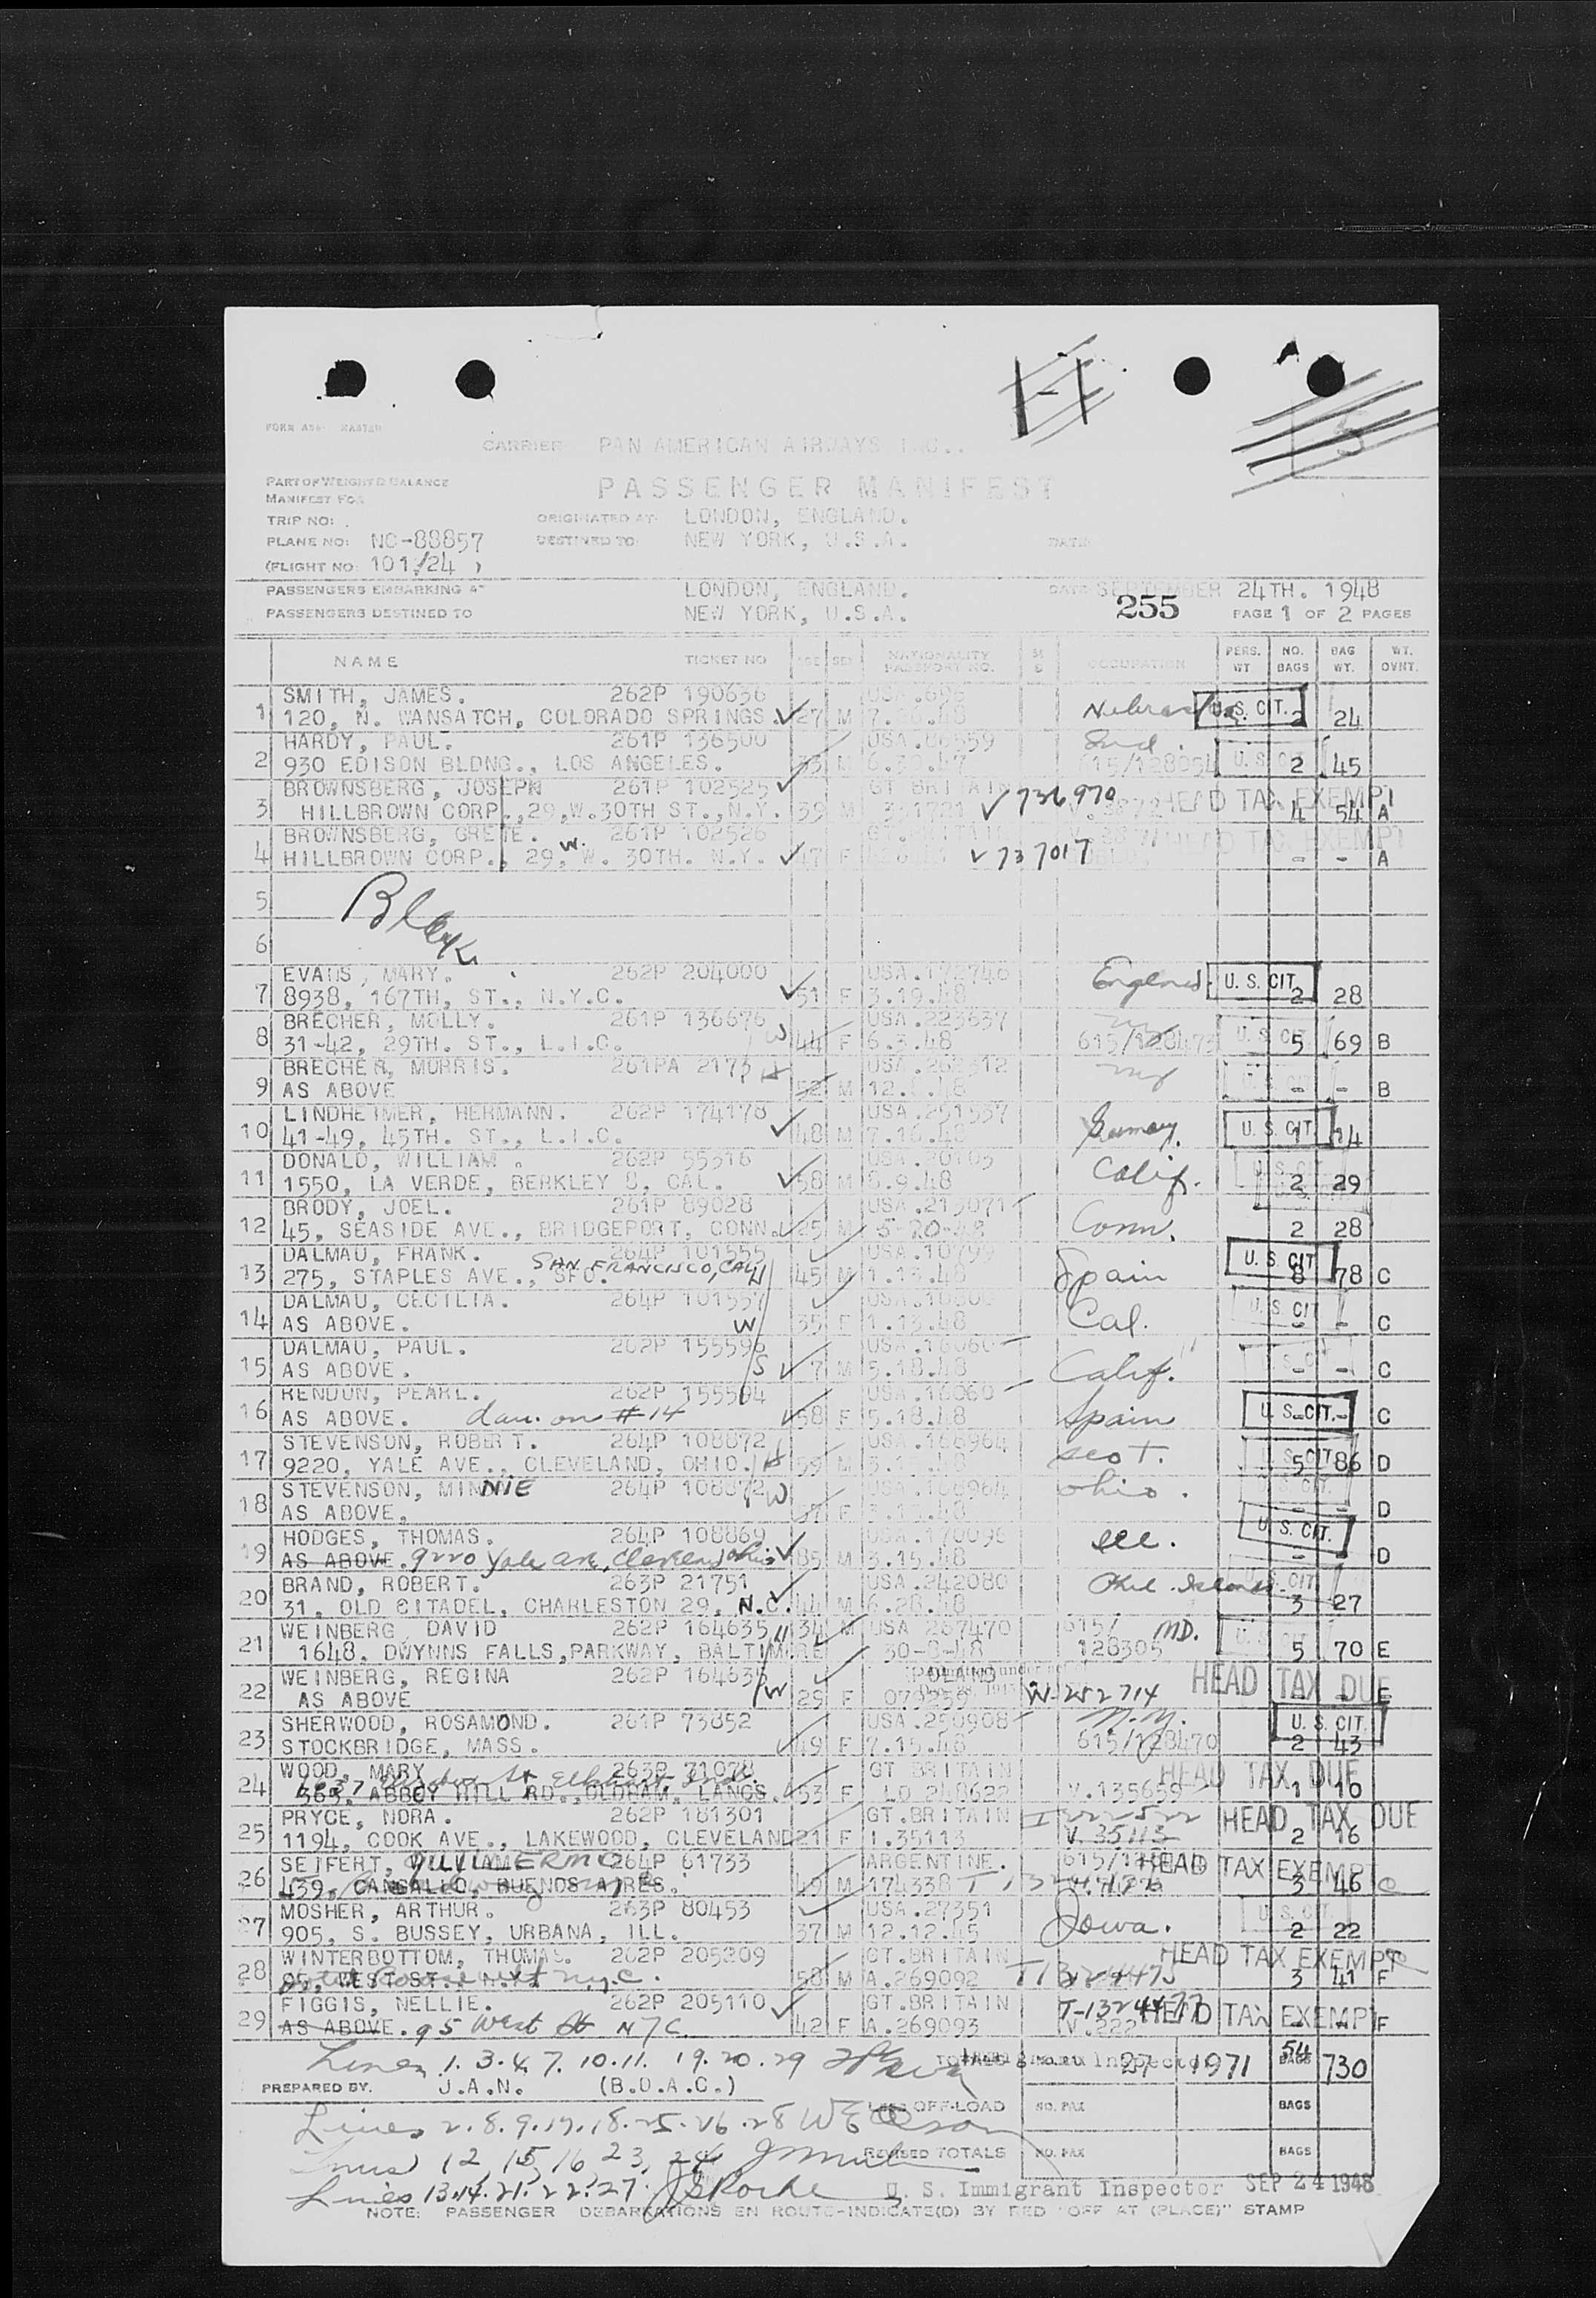 CARRIER PAN AMERICAN AIRWAYS INC..
PART OF WEIGHT & BALANCE
MANIFEST FOR
PASSENGER MANIFEST
TRIP NO:
ORIGINATED AT: LONDON, ENGLAND.
PLANE NO: NC-88857
DESTINED TO: NEW YORK, U.S.A.
DATE
(FLIGHT NO: 101/24 )
PASSENGERS EMBARKING AT LONDON, ENGLAND. DATE SEPTEMBER 24TH. 1948
PASSENGERS DESTINED TO NEW YORK, U.S.A. 255 PAGE 1 OF 2 PAGES
NAME TICKET NO AGE SEX NATIONALITY PASSPORT NO. OCCUPATION PERS. WT NO. BAGS BAG WT. WT. OVNT.
1 SMITH, JAMES. 262P 190636 USA
120, N. WANSATCH, COLORADO SPRINGS. 27 M U. S. CIT. 2 24
2 HARDY, PAUL. 261P 136500 USA.86559 Ind.
930 EDISON BLDNG., LOS ANGELES. 33 M 6.30.47 U. S. CIT. 2 45
3 BROWNSBERG, JOSEPH 261P 102525 GT BRITAIN 736970
HILLBROWN CORP.,29,W.30TH ST.,N.Y. 39 M HEAD TAX EXEMPT 4 54 A
4 BROWNSBERG, GRETE. 261P 102526
HILLBROWN CORP., 29, W. 30TH. N.Y. 47 F 737017 HEAD TAX EXEMPT - - A
5 Blank
6
7 EVANS, MARY. 262P 204000 USA.172746
8938, 167TH, ST., N.Y.C. 51 F 3.19.48 England U. S. CIT. 2 28
8 BRECHER, MOLLY. 261P 136676 W USA.223637 NY
31-42, 29TH. ST., L.I.C. 44 F 6.3.48 615/128473 U. S. CIT. 5 69 B
9 BRECHER, MORRIS. 261PA 2173 H USA.262312 NY
AS ABOVE 52 M - - B
10 LINDHEIMER, HERMANN. 262P 174178 USA.251537
41-49, 45TH. ST., L.I.C. 48 M 7.16.48 Germany. U. S. CIT. 1 14
11 DONALD, WILLIAM. 262P 55316 USA.20103
1550, LA VERDE, BERKLEY 8, CAL. 58 M 6.9.48 Calif. 2 29
12 BRODY, JOEL. 261P 89028 USA.213071
45, SEASIDE AVE., BRIDGEPORT, CONN. 25 M 5-20-48 Conn. 2 28
13 DALMAU, FRANK. 264P 101555 USA.10799
275, STAPLES AVE., SFO. SAN FRANCISCO, CAL H 45 M 1.13.48 Spain U. S. CIT 8 78 C
14 DALMAU, CECILIA. 264P 101557
AS ABOVE. W 35 F 1.13.48 Cal. U. S. CIT - - C
15 DALMAU, PAUL. 262P 155596 USA.16060
AS ABOVE. S 7 M 5.18.48 Calif. - - C
16 RENDON, PEARL. 262P 155594 USA.16060
AS ABOVE. dau. on #14 58 F 5.18.48 Spain U. S. CIT. - - C
17 STEVENSON, ROBERT. 264P 108872 USA.166964
9220, YALE AVE., CLEVELAND, OHIO. H 59 M Scot. U. S. CIT. 5 86 D
18 STEVENSON, MINNIE 264P 108872 W USA.166964
AS ABOVE. 57 F 3.15.48 Ohio. - - D
19 HODGES, THOMAS. 264P 108869 USA.170096
AS ABOVE. 9220 Yale Ave, Cleveland Ohio 85 M 3.15.48 Ill. U. S. CIT. - - D
20 BRAND, ROBERT. 263P 21751 USA.242080 Phil. Islands
31, OLD CITADEL, CHARLESTON 29, N.C. 44 M 6.28.48 3 27
21 WEINBERG DAVID 262P 164635 H 34 M USA 267470 615/ MD.
1648, DWYNNS FALLS,PARKWAY, BALTIMORE 30-8-48 128305 5 70 E
22 WEINBERG, REGINA 262P 164635 POLAND
AS ABOVE W 29 F 079259 W-252714 HEAD TAX DUE E
23 SHERWOOD, ROSAMOND. 261P 73852 USA.250908 N.Y.
STOCKBRIDGE, MASS. 49 F 7.15.48 615/128470 U. S. CIT. 2 43
24 WOOD, MARY 263P 71078 GT BRITAIN HEAD TAX DUE
363, ABBOY HILL RD.,OLDHAM, LANCS. 53 F LO 248622 V.135659 1 10
25 PRYCE, NORA. 262P 181301 GT.BRITAIN HEAD TAX DUE
1194, COOK AVE., LAKEWOOD, CLEVELAND 21 F I.35113 V. 35113 2 16
26 SEIFERT, GUILLERMO 264P 61733 ARGENTINE.
439, CANGALLO, BUENOS AIRES. 49 M 174338 HEAD TAX EXEMPT 3 46
27 MOSHER, ARTHUR. 263P 80453 USA.27351
905, S. BUSSEY, URBANA, ILL. 37 M 12.12.45 Iowa. 2 22
28 WINTERBOTTOM, THOMAS. 262P 205209 GT.BRITAIN HEAD TAX EXEMPT
95, WEST ST. N.Y.C. 58 M A.269092 T1324475 3 41 F
29 FIGGIS, NELLIE. 262P 205110 GT.BRITAIN T-1324477
AS ABOVE. 95 West St NYC 42 F A.269093 V.222 HEAD TAX EXEMPT - - F
Lines 1. 3. 4. 7. 10. 11. 19. 20. 29 TOTALS NO. PAX 27 1971 54 BAGS 730
PREPARED BY. J.A.N. (B.O.A.C.)
Lines 2. 8. 9. 17. 18. 25. 26. 28 LESS OFF-LOAD NO. PAX BAGS
Lines 12, 15, 16 23, 24 REVISED TOTALS NO. PAX BAGS
Lines 13.14. 21. 22. 27. JS Roche U. S. Immigrant Inspector SEP 24 1948
NOTE: PASSENGER DEBARKATIONS EN ROUTE-INDICATE(D) BY RED "OFF AT (PLACE)" STAMP